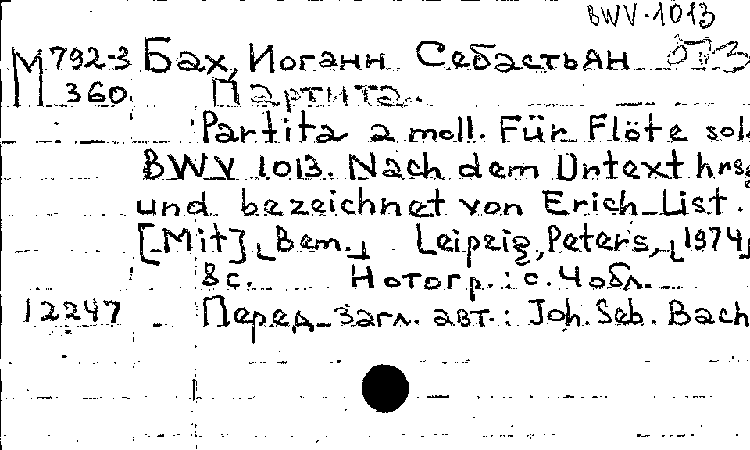 BWV.1013
М 792-3 Бах, Иоганн Себастьян
360 Партита.
Partita a moll. Für Flöte solo
BWV 1013. Nach dem Urtext hrsg
und bezeichnet von Erich List.
[Mit] Bem. Leipzig, Peters, 1974
8 с. Нотогр.: с. 4 обл.
12247 Перед загл. авт.: Joh. Seb. Bach